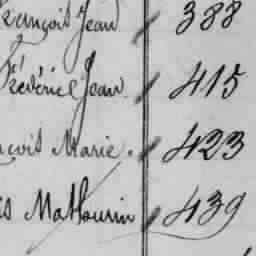 François Jean 388
Frédéric Jean 415
ncois Marie. 423
es Mathurin 439